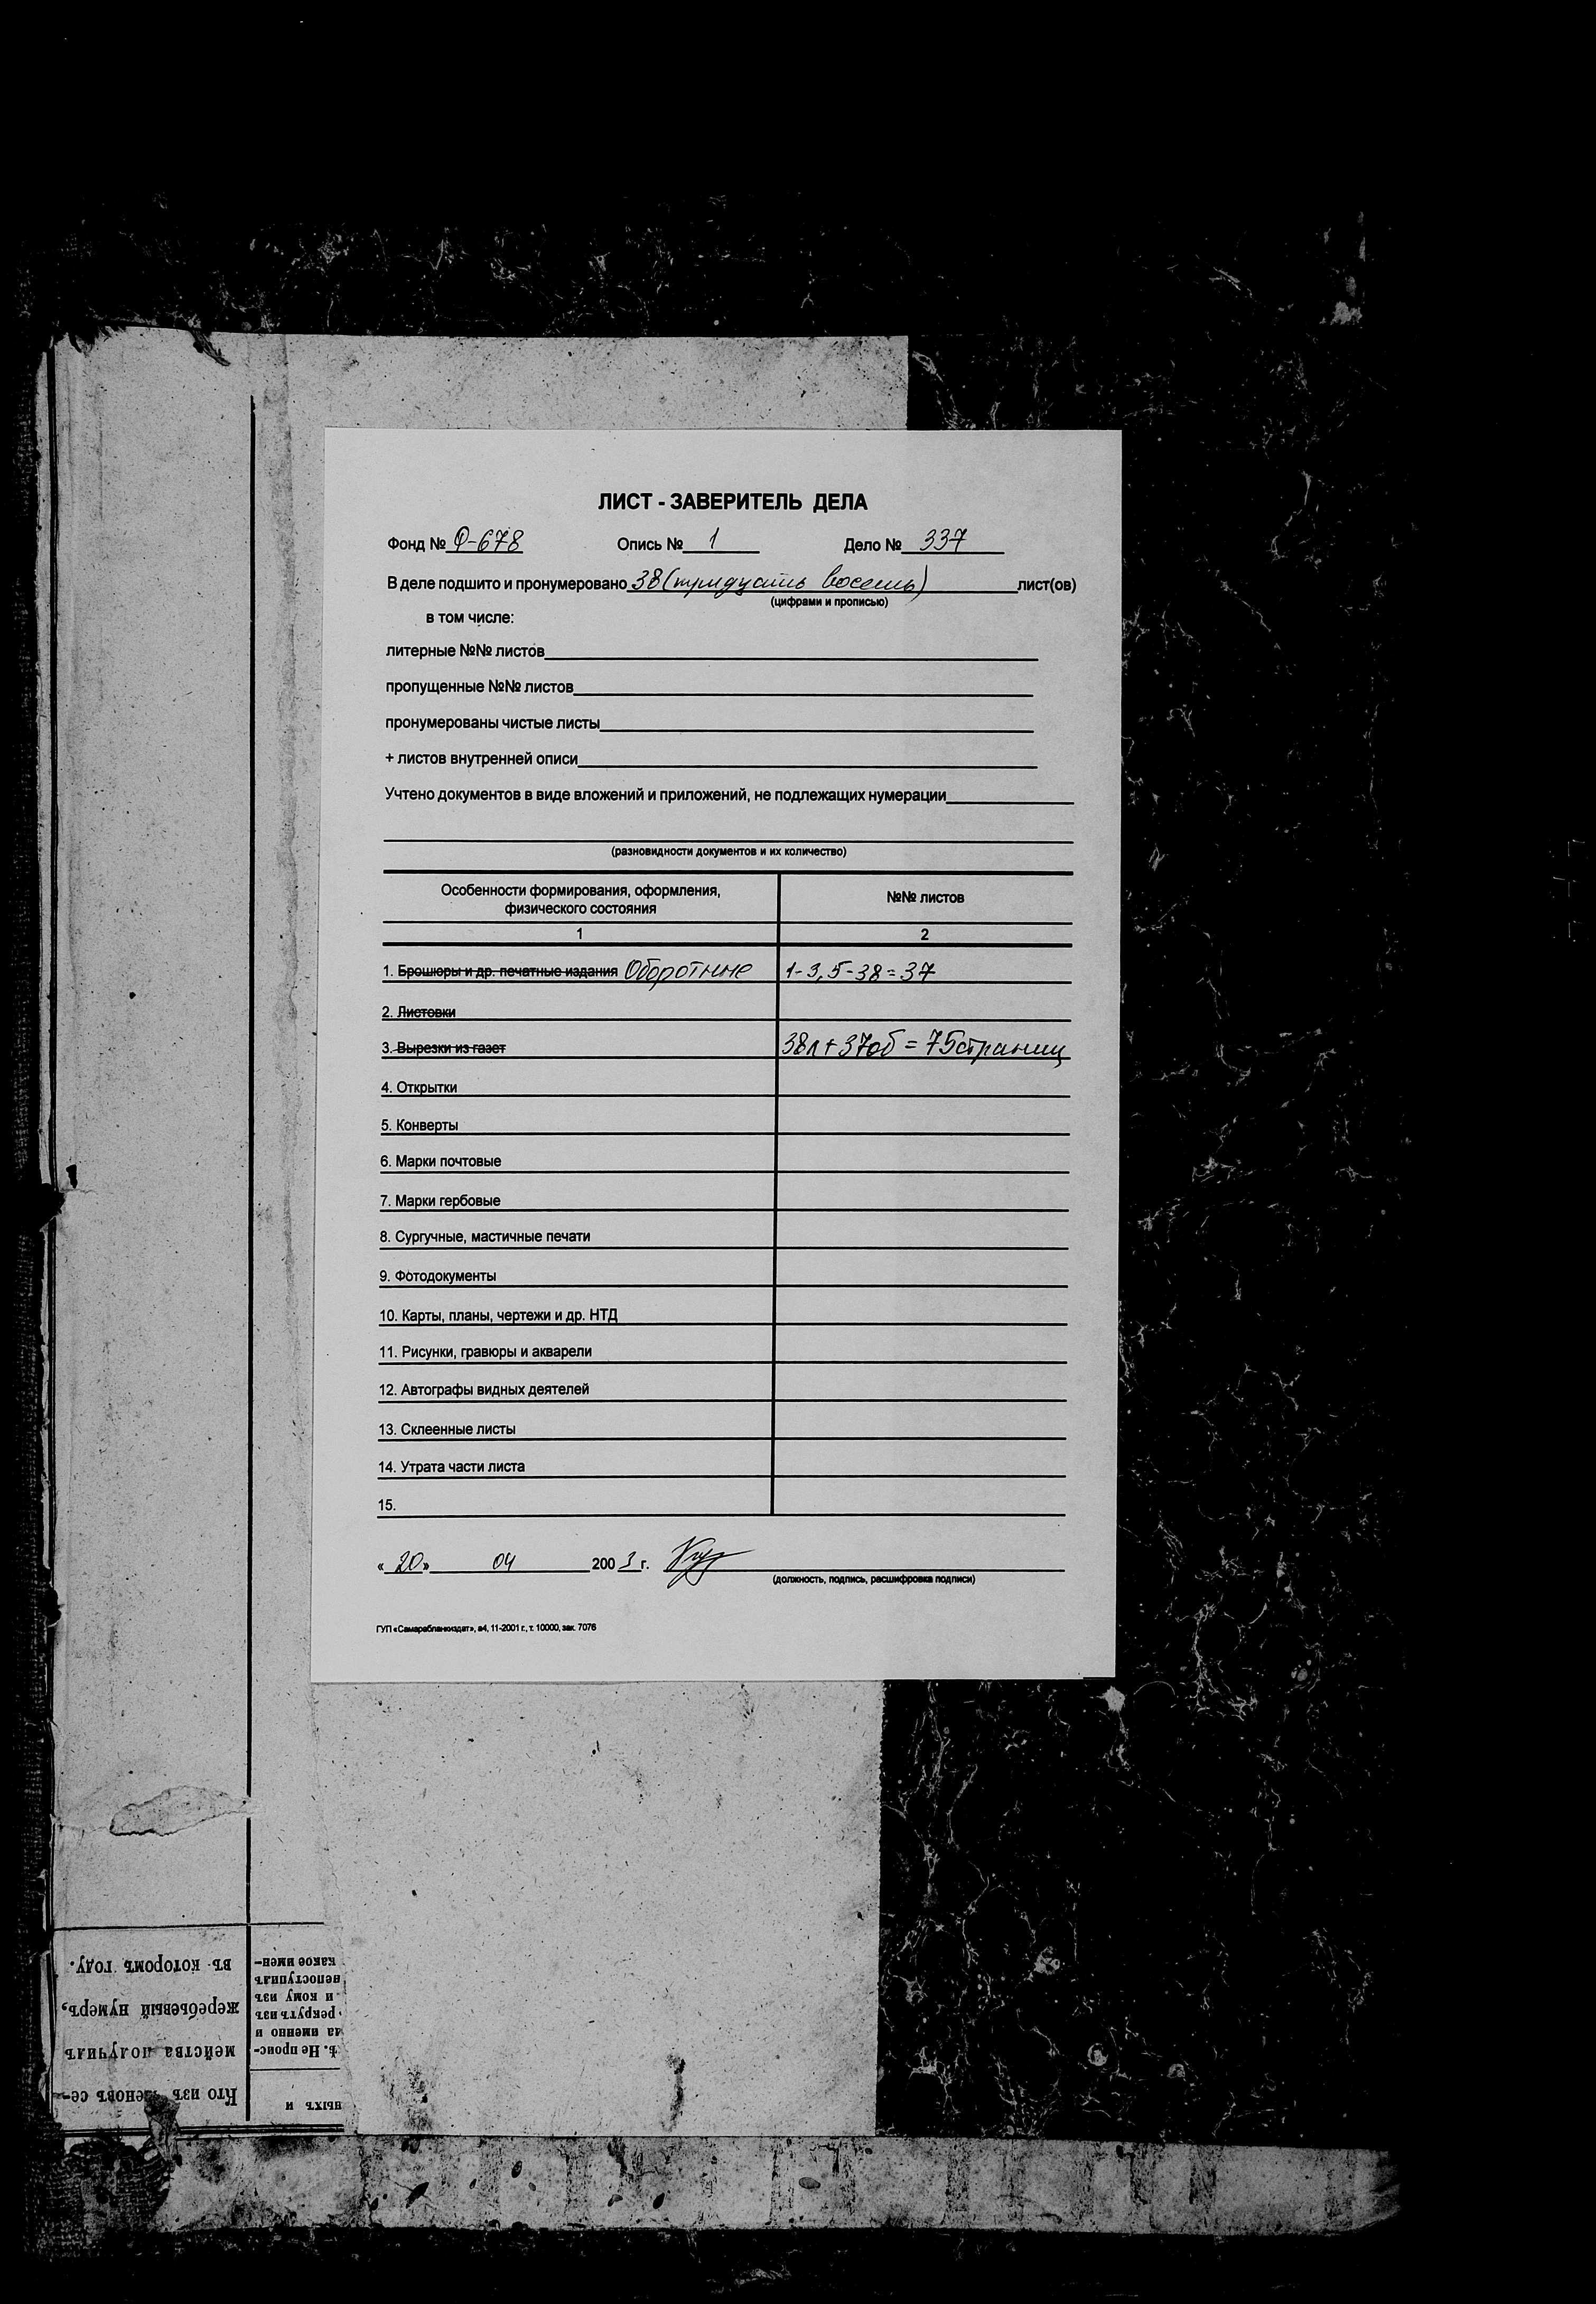 ЛИСТ - ЗАВЕРИТЕЛЬ ДЕЛА
Фонд № Ф-678 Опись № 1 Дело № 337
В деле подшито и пронумеровано 38 (тридцать восемь) лист(ов)
(цифрами и прописью)
в том числе:
литерные №№ листов
пропущенные №№ листов
пронумерованы чистые листы
+ листов внутренней описи
Учтено документов в виде вложений и приложений, не подлежащих нумерации
(разновидности документов и их количество)
Особенности формирования, оформления, №№ листов
физического состояния
1 2
1. Брошюры и др. печатные издания Оборотные 1-3, 5-38 = 37
2. Листовки
3. Вырезки из газет 38л + 37об = 75 страниц
4. Открытки
5. Конверты
6. Марки почтовые
7. Марки гербовые
8. Сургучные, мастичные печати
9. Фотодокументы
10. Карты, планы, чертежи и др. НТД
11. Рисунки, гравюры и акварели
12. Автографы видных деятелей
13. Склеенные листы
14. Утрата части листа
15.
« 20 » 04 200 3 г.
(должность, подпись, расшифровка подписи)
ГУП «Самарабланкиздат», а4, 11-2001 г., т. 10000, зак. 7076
Кто изъ членовъ се-
мейства получилъ
жеребьевый нумеръ,
въ которомъ году.
ныхъ и
ъ. Не проис-
да именно и
рекрутъ изъ
и кому изъ
непоступилъ
какое имен-